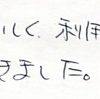 しく、利用
きました。